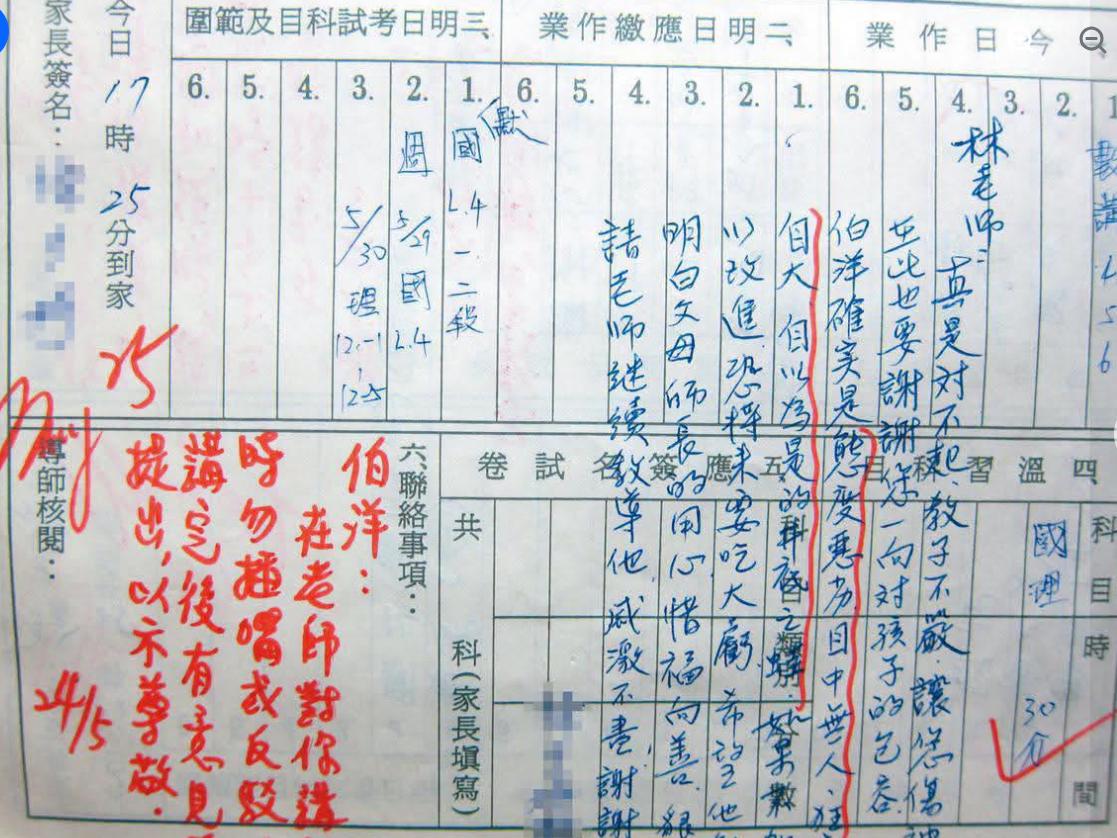 今日作業
1.
2.
3.
4.
5.
6.
二、明日應繳作業
1.
2.
3.
4.
5.
6.
三、明日考試科目及範圍
1. 國 L.4 一、二段
(默
2. 週 5/29 國 L.4
3. 5/30 理 12-1、12-5
4.
5.
6.
林老師:
真是對不起,教子不嚴,讓您傷
至此也要謝謝您一向對孩子的包容.
伯洋確實是態度惡劣、目中無人、狂
自大、自以為是的
以改進,恐將來要吃大虧,希望他
明白父母師長的用心,惜福向善.
請老師繼續教導他,感激不盡,謝謝
今日17時25分到家
家長簽名:
25
四、溫習科目
科目
國
理
時間
30分
五、應簽名試卷
科目
類別
分數
共
科(家長填寫)
六、聯絡事項:
伯洋:
在老師對你講
時勿插嘴或反駁
講完後有意見
提出,以示尊敬.
24/5
導師核閱: